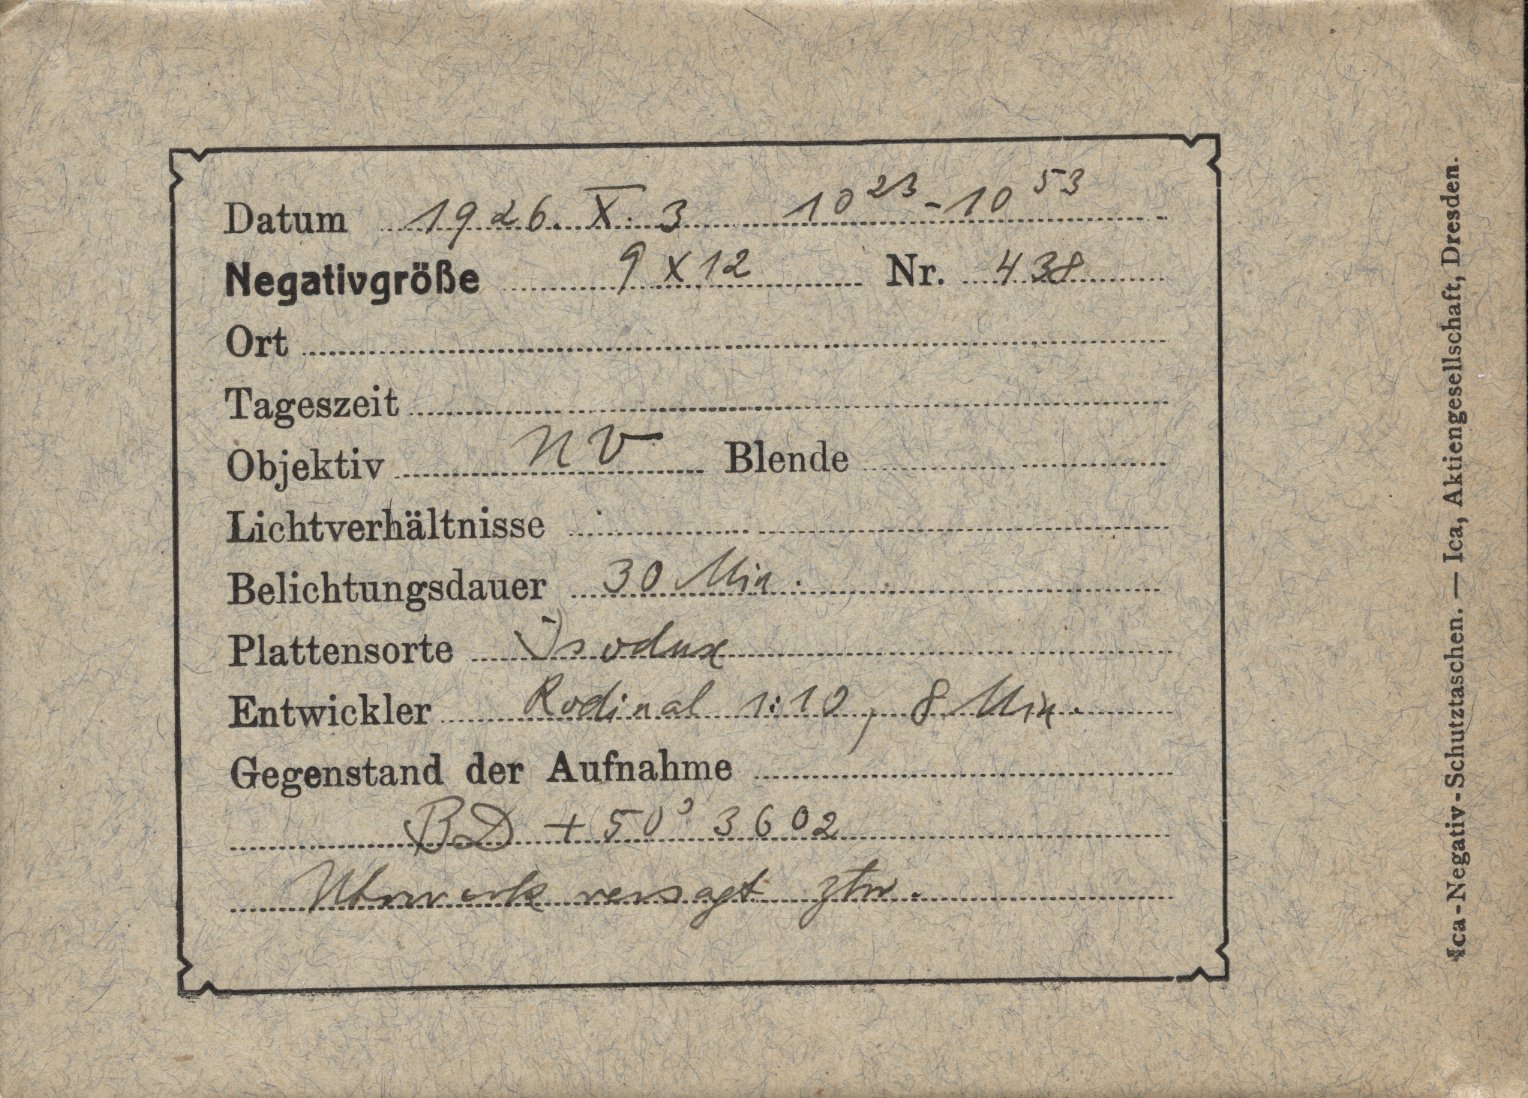 Datum 1926. X. 3 10²³-10⁵³
Negativgröße 9 x 12 Nr. 438
Ort
Tageszeit
Objektiv NV Blende
Lichtverhältnisse
Belichtungsdauer 30 Min.
Plattensorte Isodux
Entwickler Rodinal 1:10, 8 Min.
Gegenstand der Aufnahme
BD + 50° 3602
Uhrwerk versagt ztw.
Ica-Negativ-Schutztaschen. — Ica, Aktiengesellschaft, Dresden.